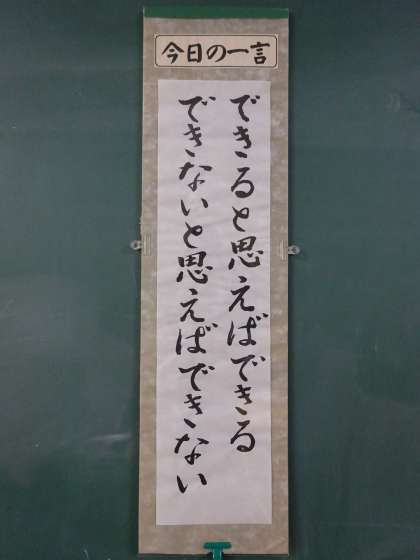 今日の一言
できると思えばできる
できないと思えばできない